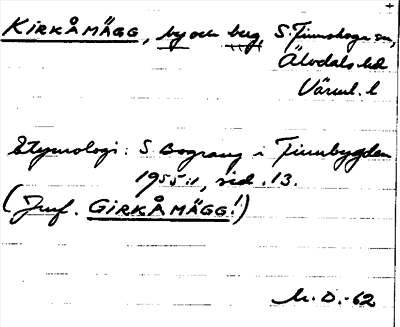 KIRKÅMÄGG, by och berg, S. Finnskoga sn,
Älvdals hd
Värml. l
Etymologi: S. Bograng i Finnbygden
1955:1, sid. 13.
(Jmf. GIRKÅMÄGG!)
M. D. -62